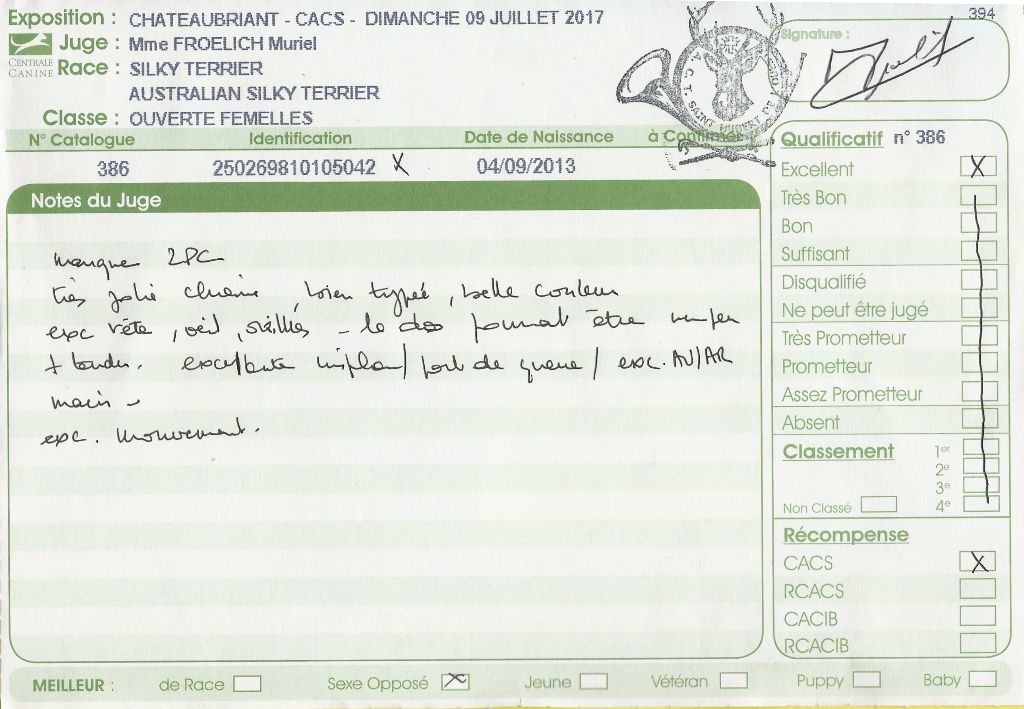 Exposition : CHATEAUBRIANT - CACS - DIMANCHE 09 JUILLET 2017
394
CENTRALE CANINE
Juge : Mme FROELICH Muriel
Signature :
Race : SILKY TERRIER
AUSTRALIAN SILKY TERRIER
Classe : OUVERTE FEMELLES
A. C. T. SAINT HUBERT DE
N° Catalogue Identification Date de Naissance à Confirmer
386 250269810105042 X 04/09/2013
Notes du Juge
manque 2PC
très jolie chienne, bien typée, belle couleur
exc tête, oeil, oreilles - le dos pourrait être un peu
+ tendu. excellente implan/port de queue / exc. AV/AR
main -
exc. mouvement.
Qualificatif n° 386
Excellent X
Très Bon
Bon
Suffisant
Disqualifié
Ne peut être jugé
Très Prometteur
Prometteur
Assez Prometteur
Absent
Classement 1er
2e
3e
Non Classé 4e
Récompense
CACS X
RCACS
CACIB
RCACIB
MEILLEUR : de Race Sexe Opposé X Jeune Vétéran Puppy Baby